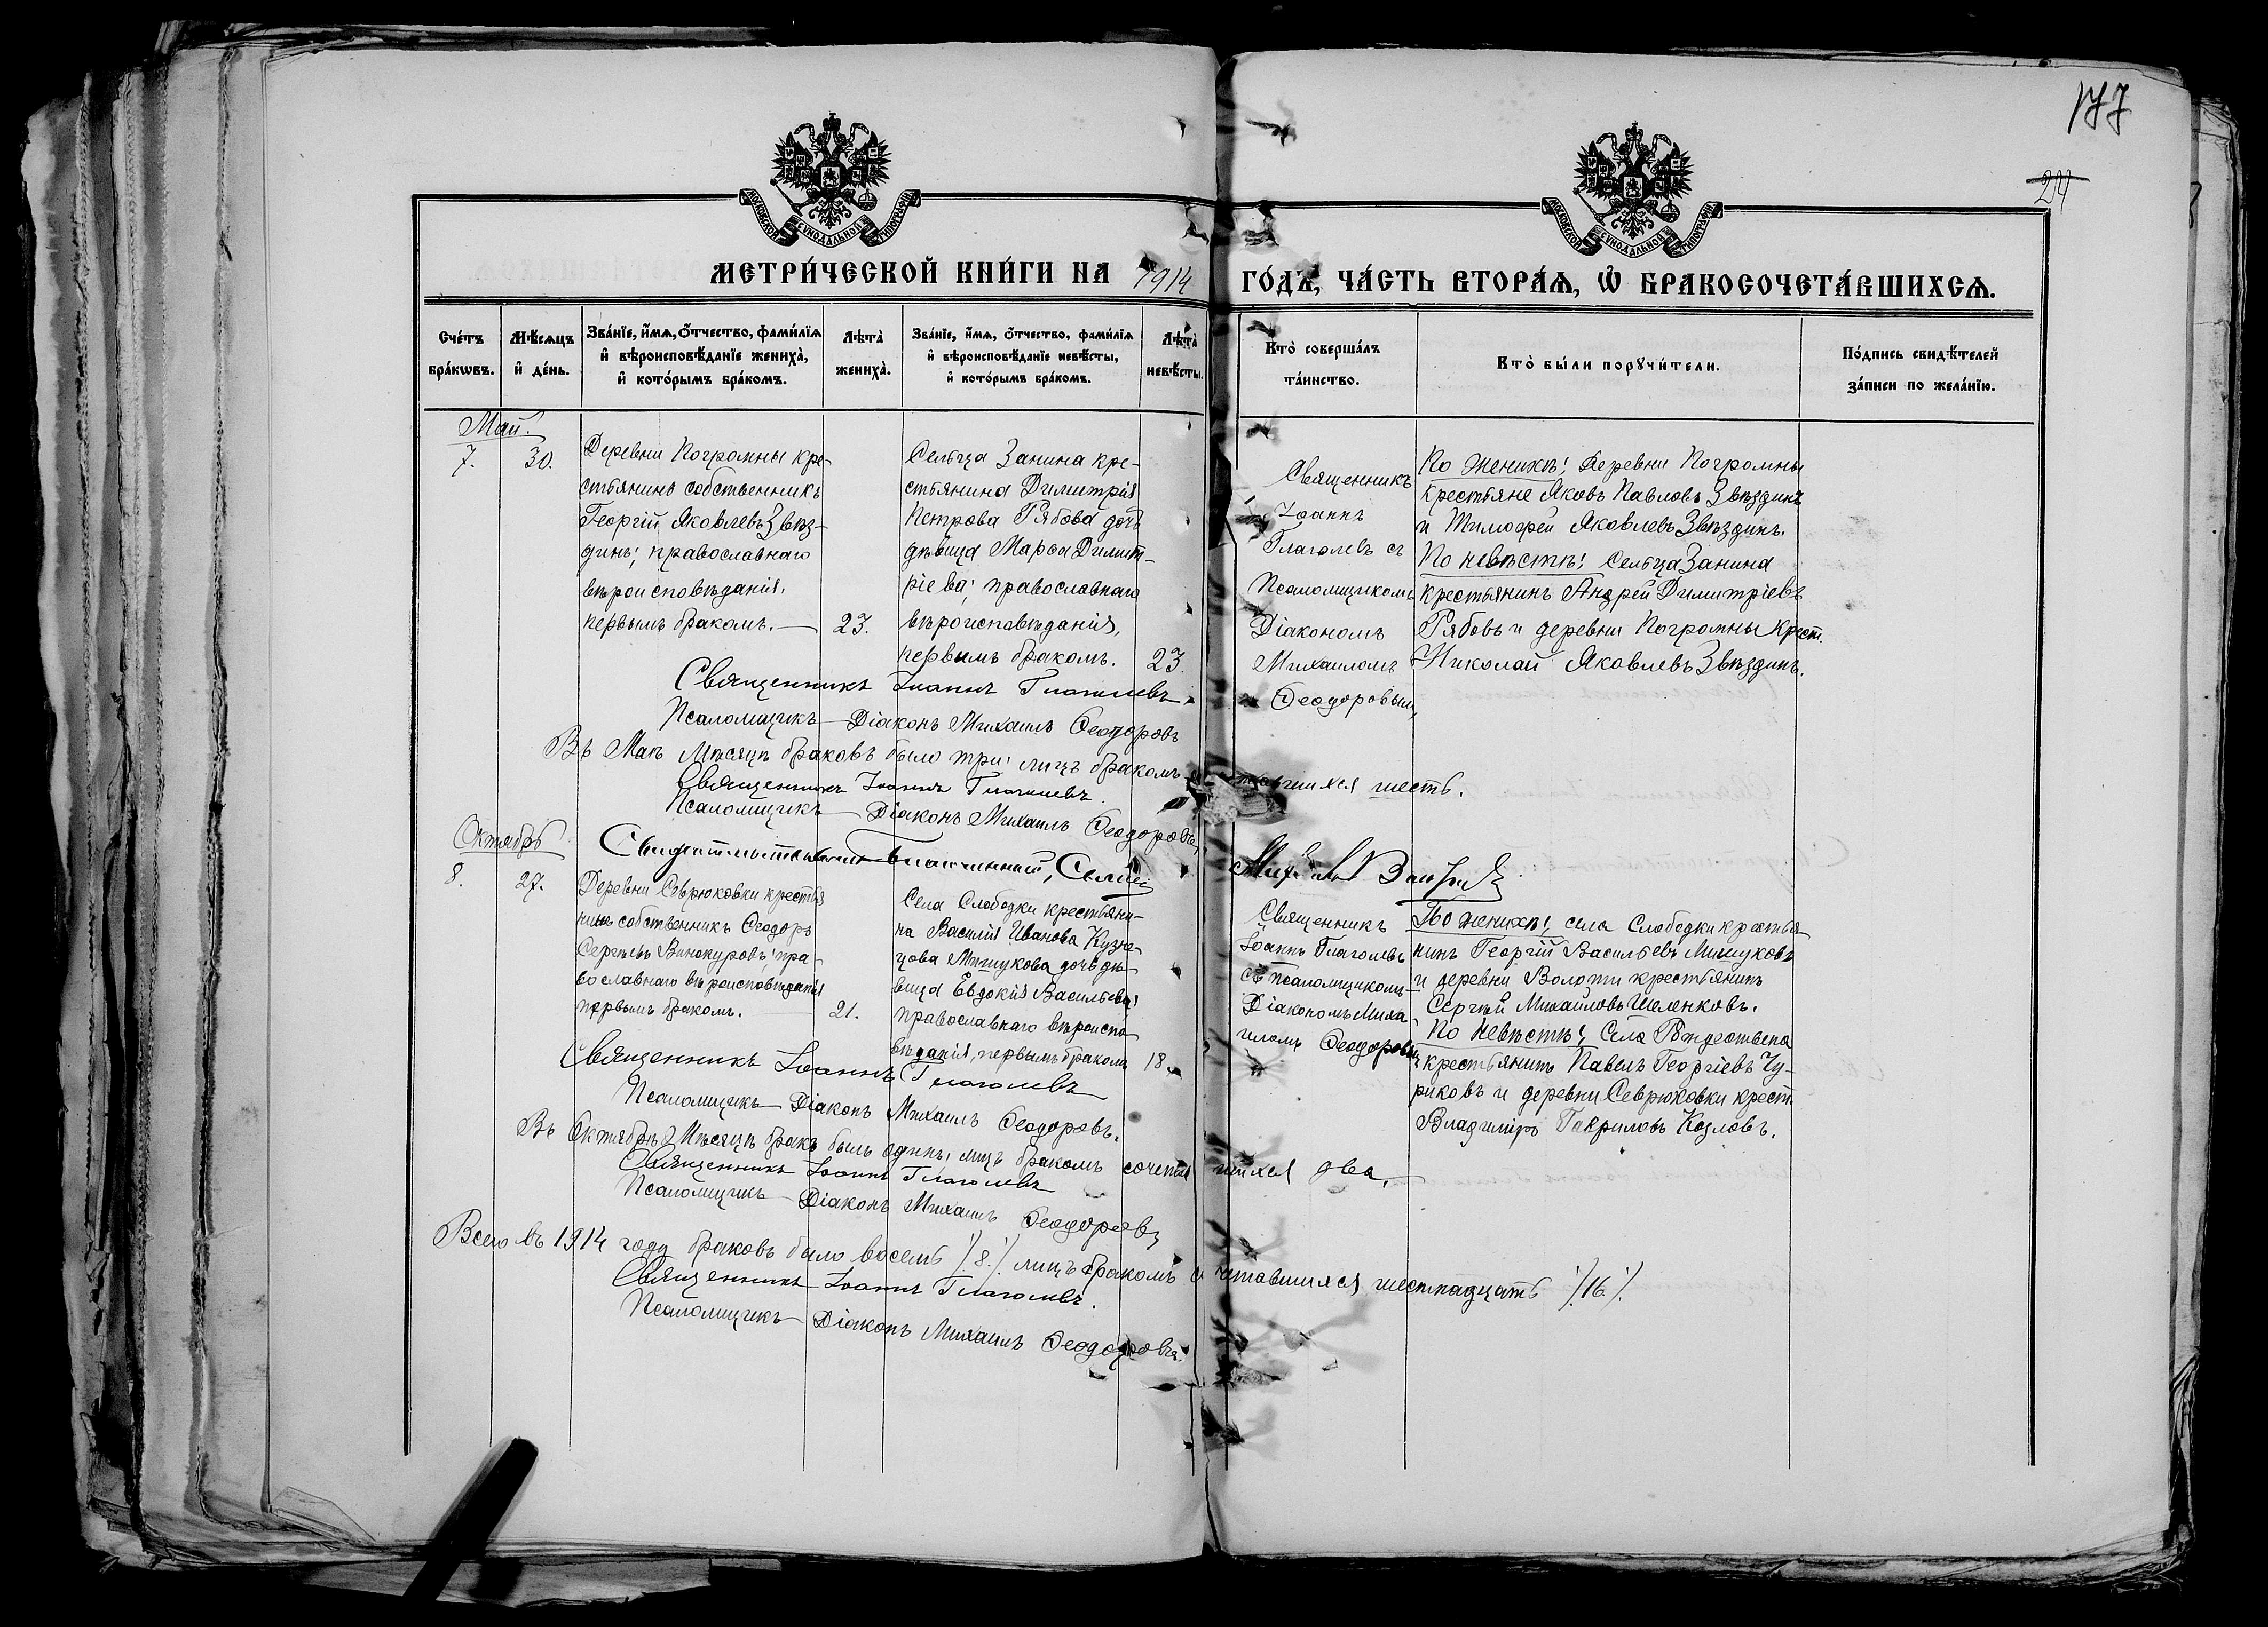 177
24
МОСКОВСКОЙ СѴНОДАЛЬНОЙ ТИПОГРАФІИ
МОСКОВСКОЙ СѴНОДАЛЬНОЙ ТИПОГРАФІИ
МЕТРИ́ЧЕСКОЙ КНИ́ГИ НА 1914 ГО́ДЪ, ЧА́СТЬ ВТОРА́Ѧ, Ѡ҆ БРАКОСОЧЕТА́ВШИХСѦ.
Сче́тъ бра́кѡвъ.
Мѣ́сѧцъ и҆ де́нь.
Зва́нїе, и҆́мѧ, ѻ҆́тчество, фами́лїѧ
и҆ вѣроисповѣ́данїе жениха̀,
и҆ кото́рымъ бра́комъ.
Лѣта̀ жениха̀.
Зва́нїе, и҆́мѧ, ѻ҆́тчество, фами́лїѧ
и҆ вѣроисповѣ́данїе невѣ́сты,
и҆ кото́рымъ бра́комъ.
Лѣта̀ невѣ́сты.
Кто̀ соверша́лъ
та́инство.
Кто̀ бы́ли порꙋчи́тели.
По́дпись свидѣ́телей
за́писи по жела́нїю.
Май.
7.
30.
Деревни Погромны кре-
стьянинъ собственникъ
Георгій Яковлевъ Звѣз-
динъ; православнаго
вѣроисповѣданія.
первымъ бракомъ. — 23.
Сельца Занина кре-
стьянина Димитрія
Петрова Рябова дочь
дѣвица Марѳа Димит-
ріева; православнаго
вѣроисповѣданія,
первымъ бракомъ. 23.
Священникъ
Іоаннъ
Глаголевъ съ
Псаломщикомъ
Діакономъ
Михаиломъ
Ѳеодоровым
По женихѣ: Деревни Погромны
крестьяне Яковъ Павловъ Звѣздинъ
и Тимоѳей Яковлевъ Звѣздинъ.
По невѣстѣ: Сельца Занина
крестьянинъ Андрей Димитріевъ
Рябовъ и деревни Погромны крест.
Николай Яковлевъ Звѣздинъ.
Священникъ Іоаннъ Глаголевъ.
Псаломщикъ — Діаконъ Михаилъ Ѳеодоровъ
Въ Маѣ Мѣсяцѣ браковъ было три; лицъ бракомъ шесть.
Священникъ Іоаннъ Глаголевъ.
Псаломщикъ — Діаконъ Михаилъ Ѳеодоровъ
Октябрь
8.
27.
Деревни Севрюковки крестья
нинъ собственникъ Ѳеодоръ
Сергѣевъ Винокуровъ; пра-
вославнаго вѣроисповѣданія
первымъ бракомъ. — 21.
Села Слободки крестьяни-
на Василія Иванова Кузне-
цова Мишукова дочь дѣ-
вица Евдокія Васильева;
православнаго вѣроиспо-
вѣданія, первымъ бракомъ 18.
Священникъ
Іоаннъ Глаголевъ
съ псаломщикомъ
Діакономъ Миха
иломъ Ѳеодоровым
По женихѣ: села Слободки крестья-
нинъ Георгій Васильевъ Мишуковъ
и деревни Волоти крестьянинъ
Сергѣй Михайловъ Шеленковъ.
По Невѣстѣ: Села Рождествена
крестьянинъ Павелъ Георгіевъ Чу-
риковъ и деревни Севрюковки крест.
Владиміръ Гавриловъ Козловъ.
Священникъ Іоаннъ Глаголевъ
Псаломщикъ — Діаконъ Михаилъ Ѳеодоровъ.
Въ Октябрѣ Мѣсяцѣ бракъ былъ одинъ; лицъ бракомъ сочетавшихся два.
Священникъ Іоаннъ Глаголевъ
Псаломщикъ — Діаконъ Михаилъ Ѳеодоровъ
Всего въ 1914 году браковъ было восемь /.8./ лицъ бракомъ сочетавшихся шестнадцать /.16./.
Священникъ Іоаннъ Глаголевъ.
Псаломщикъ — Діаконъ Михаилъ Ѳеодоровъ.